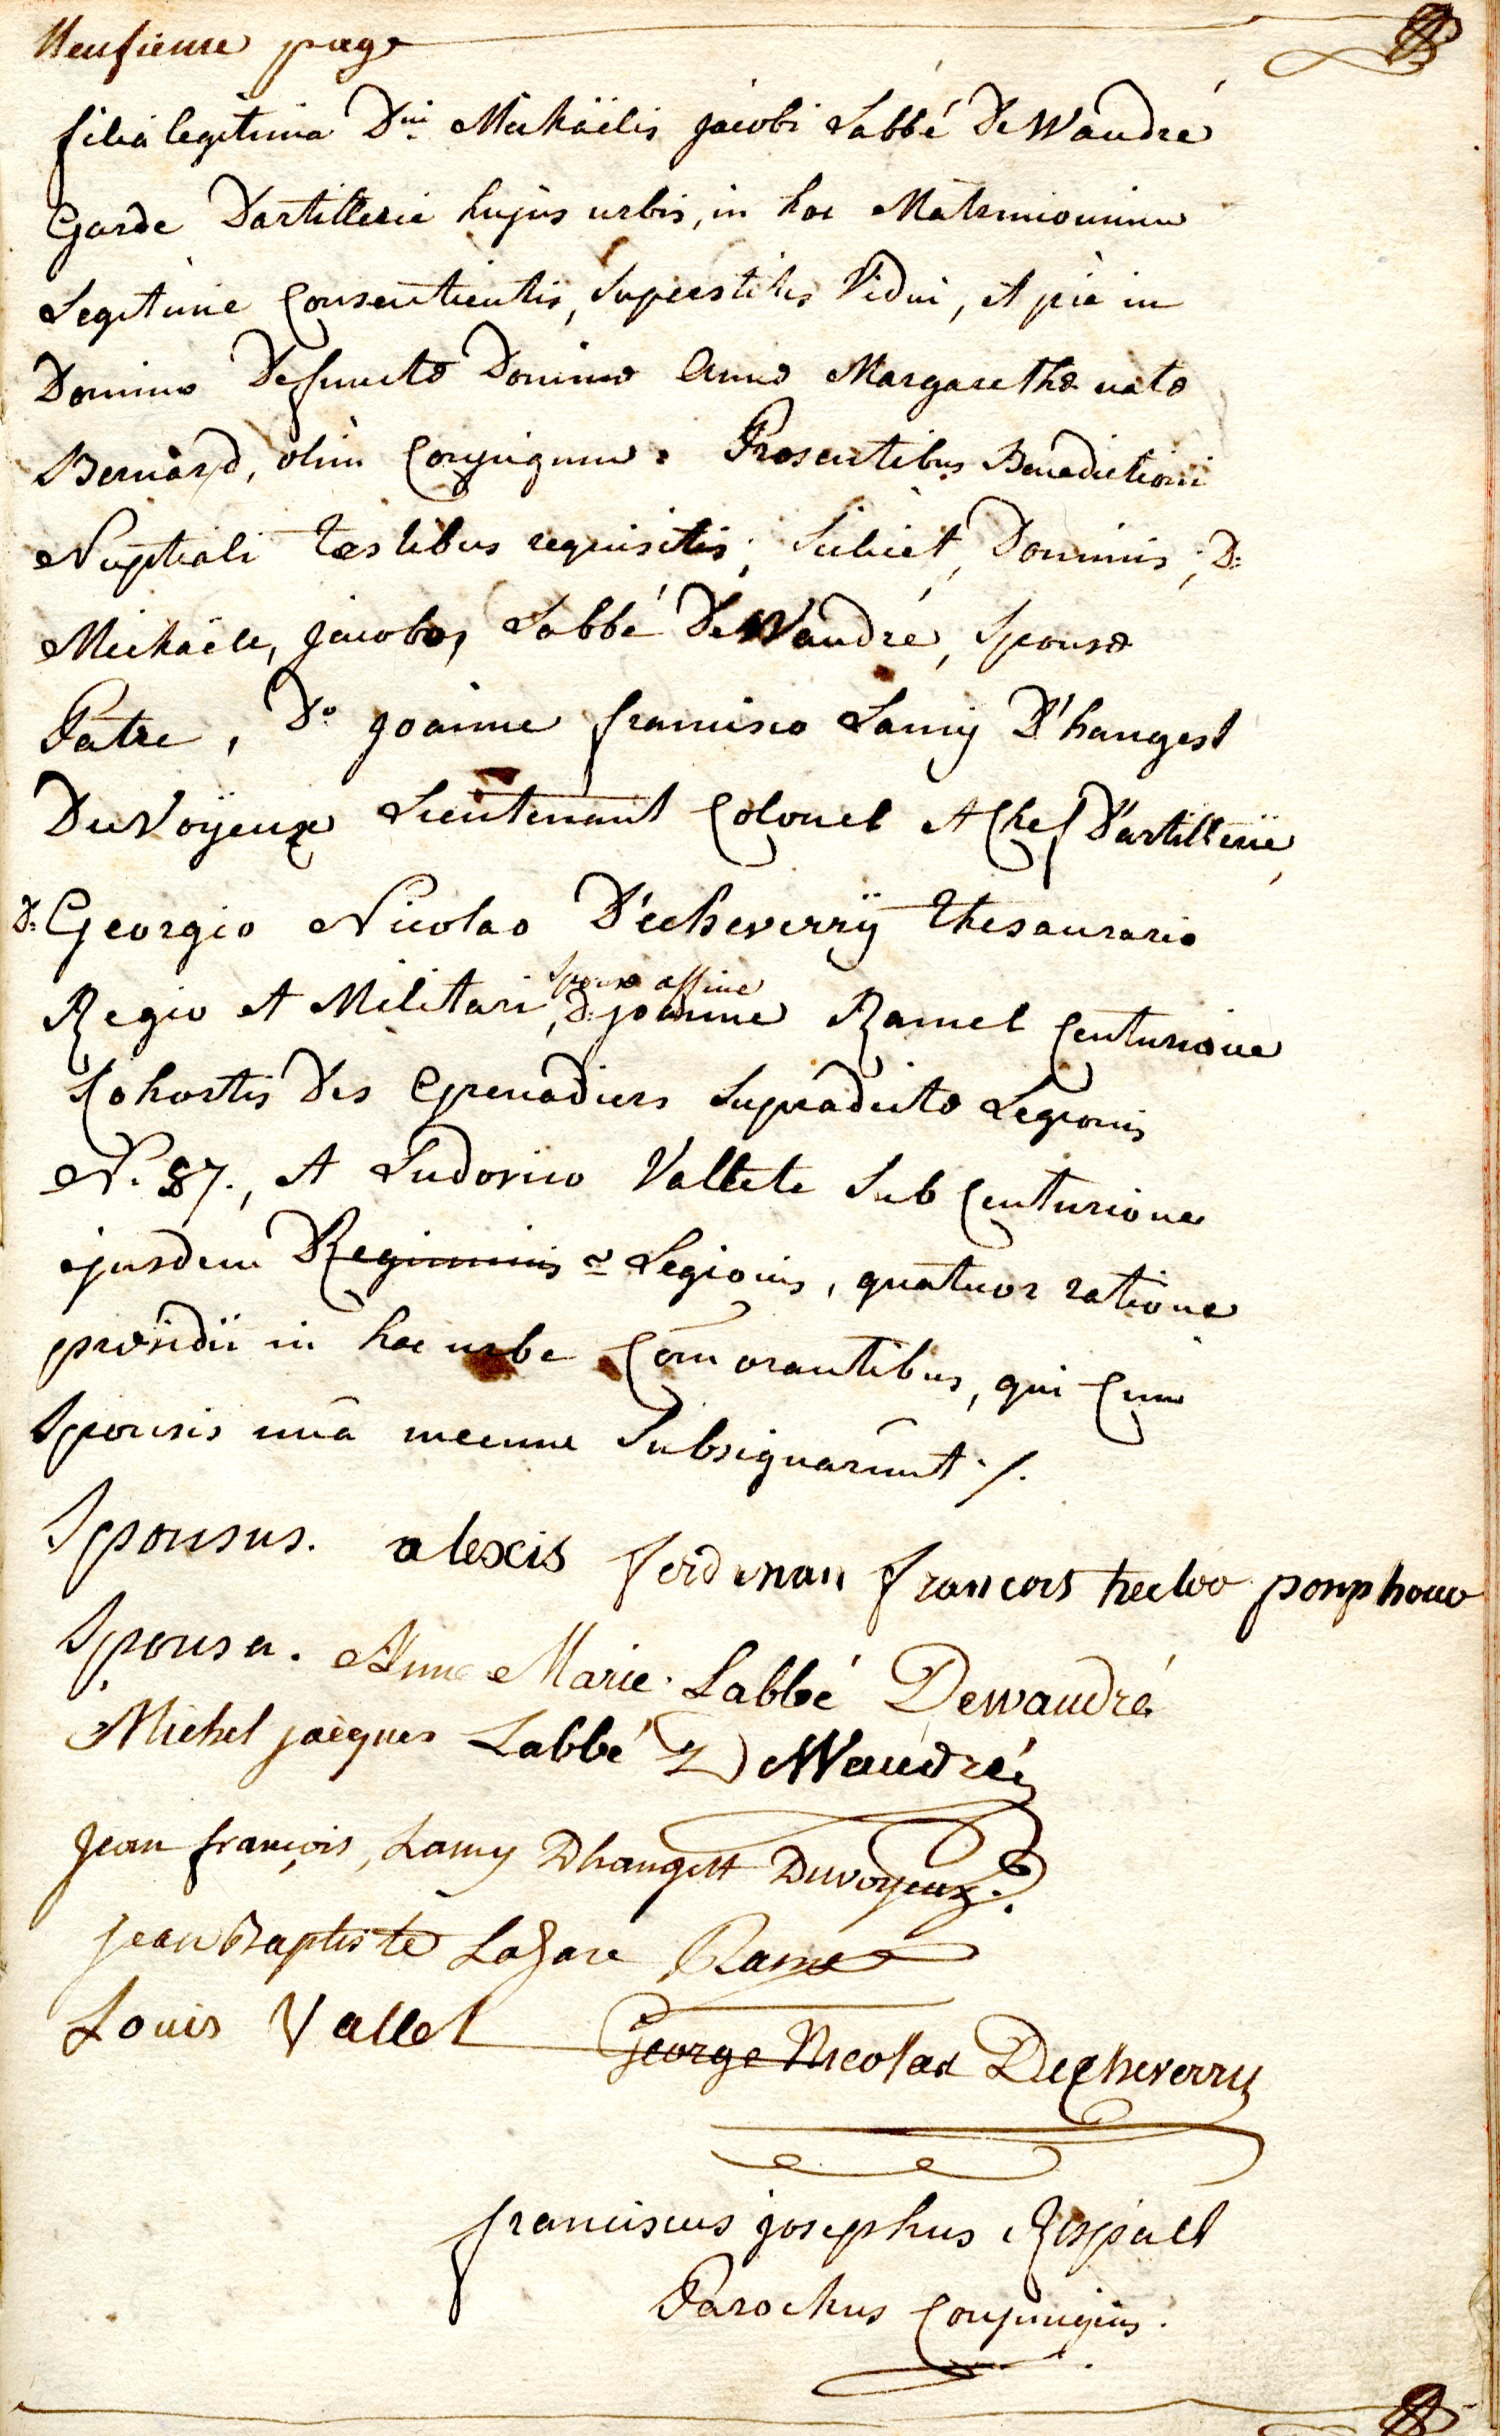 Neufieme page
filia legitima D.ni Michaëlis jacobi Labbé De Waudré
Garde Dartillerie hujus urbis, in hoc Matrimonium
Legitime Consentientis, Superstitis Vidui, et piè in
Domino Defunctæ Dominæ Annæ Margarethæ natæ
Bernard, olim Conjugum. Præsentibus Benedictioni
Nuptiali testibus requisitis; Scilicet, Dominis; D:
Michaële, jacobo, Labbé De Waudré, Sponsæ
Patre, D.o joanne francisco Lamy D'hangest
DuVoÿeux Lieutenant Colonel et Chef D'artillerie,
D: Georgio Nicolao D'echeverrÿ thesaurario
Sponsæ affine
Regio et Militari, D: joanne Ramel Centurione
Cohortis Des Grenadiers Supradictæ Legionis
N. 87., et Ludovico Vallete Sub Centurione
ejusdem Regiminis Legionis, quatuor ratione
præsidii in hac urbe Com̃orantibus, qui Cum
Sponsis unâ mecum Subsignarunt ./.
Sponsus. alexis ferdinan francois hector ponphow
Sponsa. Anne Marie Labbé Dewaudré
Michel jacques Labbé De Waudré
Jean françois, Lamy Dhangest Duvoyeux.
Jean Baptiste Lazare Ramel
Louis Vallet George Nicolas Decheverry
franciscus josephus Rispalt
Parochus Conjungens.